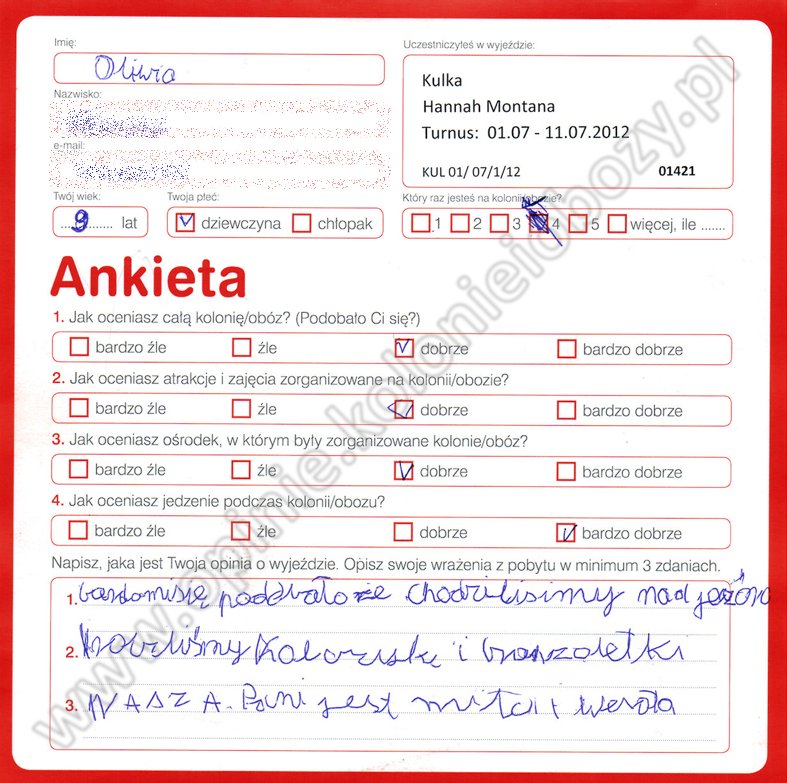 Imię:
Oliwia
Uczestniczyłeś w wyjeździe:
Kulka
Hannah Montana
Turnus: 01.07 - 11.07.2012
KUL 01/ 07/1/12 01421
Nazwisko:
e-mail:
Twój wiek:
9 lat
Twoja płeć:
dziewczyna chłopak
Który raz jesteś na kolonii/obozie?
1 2 3 4 5 więcej, ile .......
Ankieta
1. Jak oceniasz całą kolonię/obóz? (Podobało Ci się?)
bardzo źle źle dobrze bardzo dobrze
2. Jak oceniasz atrakcje i zajęcia zorganizowane na kolonii/obozie?
bardzo źle źle dobrze bardzo dobrze
3. Jak oceniasz ośrodek, w którym były zorganizowane kolonie/obóz?
bardzo źle źle dobrze bardzo dobrze
4. Jak oceniasz jedzenie podczas kolonii/obozu?
bardzo źle źle dobrze bardzo dobrze
Napisz, jaka jest Twoja opinia o wyjeździe. Opisz swoje wrażenia z pobytu w minimum 3 zdaniach.
1. podobało że chodzilisimy nad
2. i
3. NASZA Pani jest miła i
www.opinie.kolonieiobozy.pl